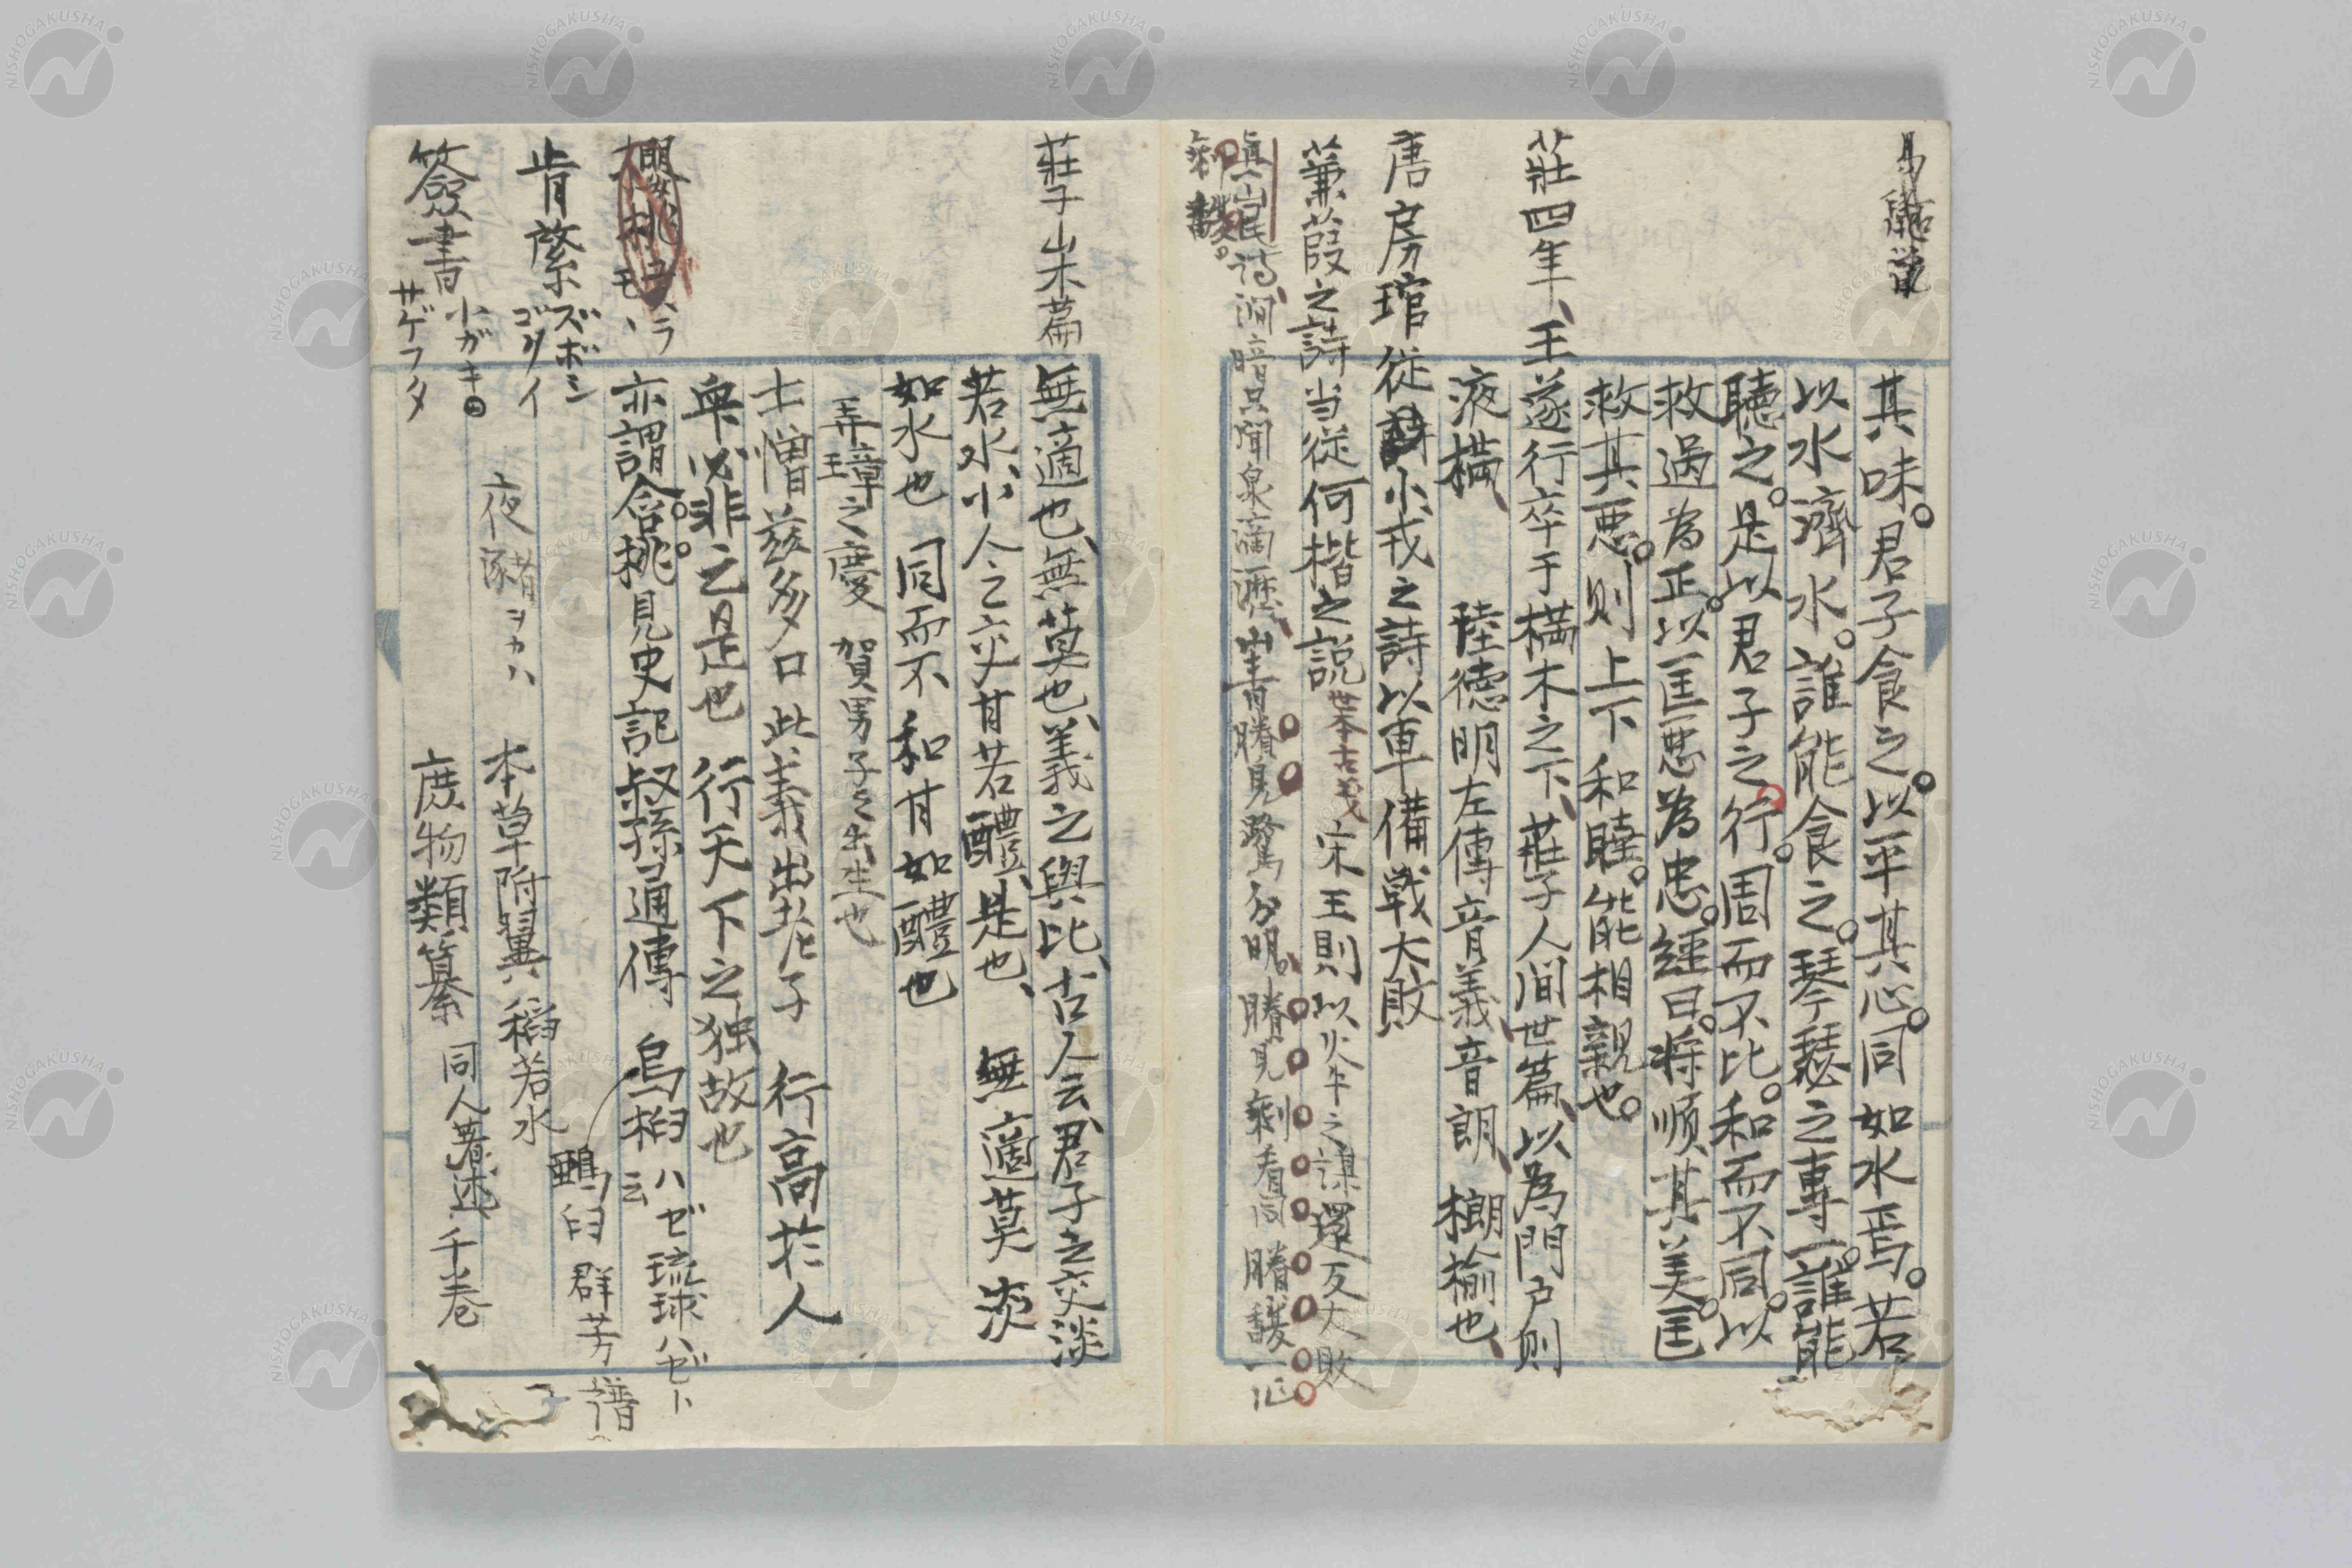 其味。君子食之。以平其心。同如水焉。若
以水濟水。誰能食之。琴瑟之專一。誰能
聽之。是以君子之行。周而不比。和而不同。以
救過為正。以匡悪為忠。經曰。将順其美。匡
救其悪。則上下和睦。能相親也。
莊四年、王遂行卒于樠木之下、莊子人间世篇、以為門户則
液樠、 陸德明左傳音義、音朗、榔榆也、
唐房琯従小戎之詩以車備戦大敗
蒹葭之詩当従何楷之説 世本古義 宋王則以火牛之謀還反大敗
真山民诗、澗暗只聞泉滴瀝、山青賸見鷺分明、賸見剩看同
莊子山木篇
無適也、無莫也、義之與比、古人云、君子之交淡
若水、小人之交甘若醴、是也、 無適莫淡
如水也 同而不和甘如醴也
弄璋之慶 賀男子之出生也
士憎兹多口此義出老子 行高於人
衆必非之是也 行天下之独故也
櫻桃 ユスラ モヽ
亦謂含桃。見史記叔孫通傳 烏桕ハゼ 琉球ハゼト云
鵶臼 群芳譜
肯綮 ズボシ ゴタイ
夜豬ヲカハ 本草附翼 稻若水
簽書 小ガキ サゲフタ
庶物類纂 同人著述 千巻
NISHOGAKUSHA